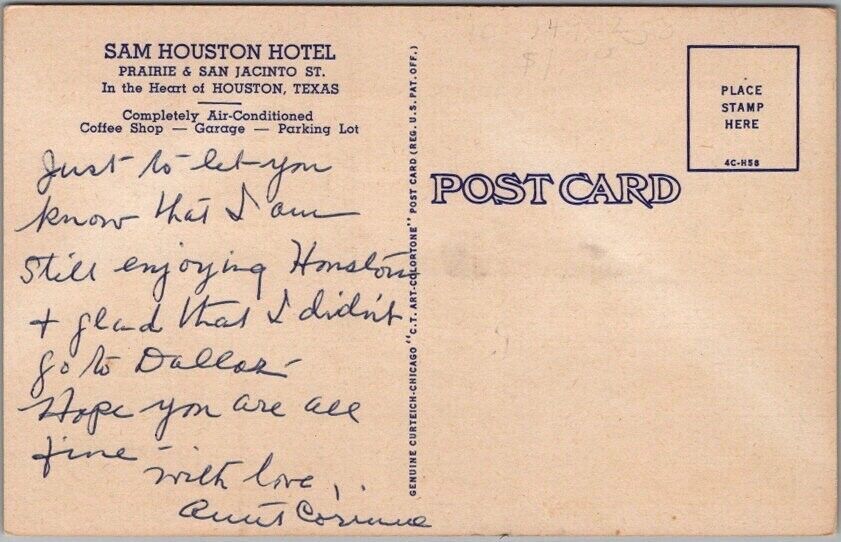 SAM HOUSTON HOTEL
PRAIRIE & SAN JACINTO ST.
In the Heart of HOUSTON, TEXAS
Completely Air-Conditioned
Coffee Shop — Garage — Parking Lot
Just to let you
know that I am
still enjoying Houston
+ glad that I didn't
go to Dallas -
Hope you are all
fine -
with love,
Aunt Corinne
GENUINE CURTEICH-CHICAGO "C.T. ART-COLORTONE" POST CARD (REG. U.S. PAT. OFF.)
POST CARD
PLACE
STAMP
HERE
4C-H58